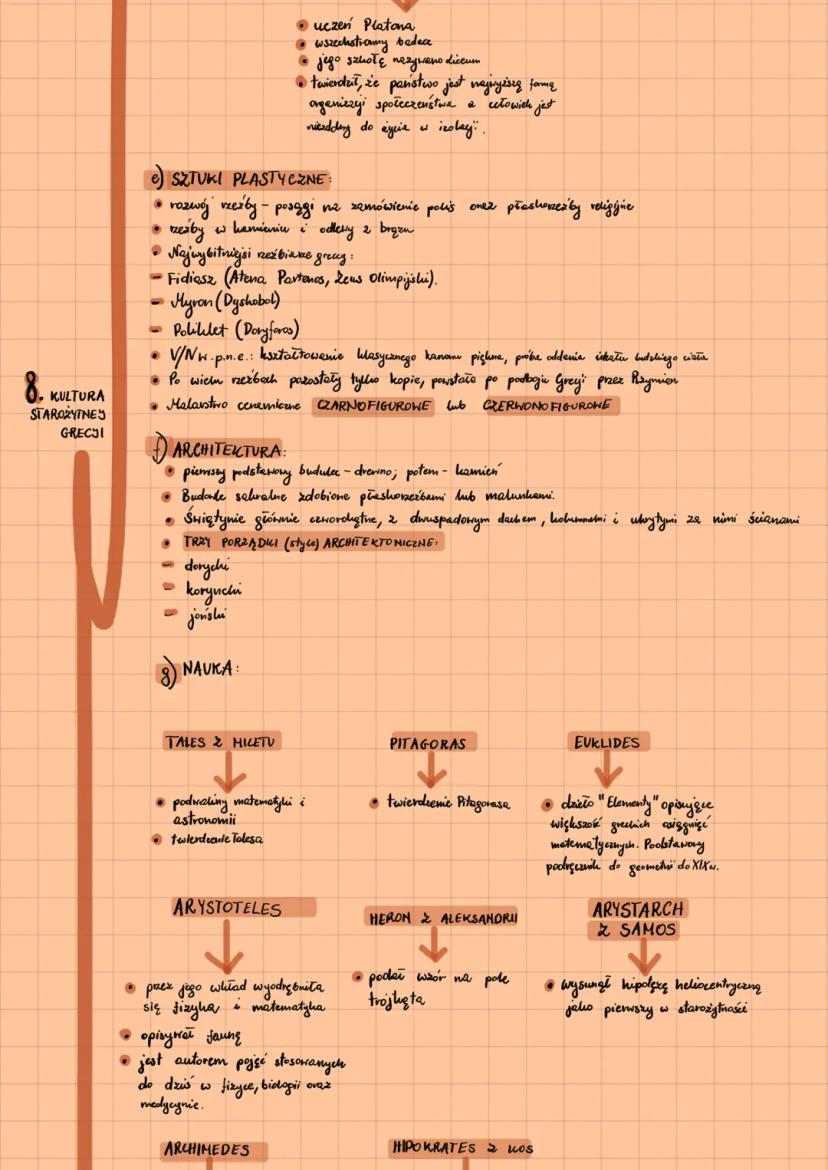 • uczeń Platona
• wszechstronny badacz
• jego szkołę nazywano liceum
• twierdził, że państwo jest najwyższą formą
organizacji społeczeństwa a człowiek jest
niezdolny do życia w izolacji.
e) SZTUKI PLASTYCZNE:
• rozwój rzeźby - posągi na zamówienie polis oraz płaskorzeźby religijne
• rzeźby w kamieniu i odlewy z brązu
• Najwybitniejsi rzeźbiarze greccy:
- Fidiasz (Atena Partenos, Zeus Olimpijski).
- Myron (Dyskobol)
- Poliklet (Doryforos)
• V/IV w.p.n.e.: kształtowanie klasycznego kanonu piękna, próba oddania ideału ludzkiego ciała
• Po wielu rzeźbach pozostały tylko kopie, powstałe po podboju Grecji przez Rzymian
8. KULTURA
STAROŻYTNEJ
GRECJI
• Malarstwo ceramiczne CZARNOFIGUROWE lub CZERWONOFIGUROWE
f) ARCHITEKTURA:
• pierwszy podstawowy budulec - drewno; potem - kamień
• Budowle sakralne zdobione płaskorzeźbami lub malunkami.
• Świątynie głównie czworokątne, z dwuspadowym dachem, kolumnami i ukrytymi za nimi ścianami
• TRZY PORZĄDKI (style) ARCHITEKTONICZNE:
- dorycki
- koryncki
- joński
g) NAUKA:
TALES Z MILETU PITAGORAS EUKLIDES
• podwaliny matematyki i
astronomii
• twierdzenie Talesa
• twierdzenie Pitagorasa
• dzieło "Elementy" opisujące
większość greckich osiągnięć
matematycznych. Podstawowy
podręcznik do geometrii do XIX w.
ARYSTOTELES
HERON Z ALEKSANDRII
ARYSTARCH
Z SAMOS
• przez jego wkład wyodrębniła
się fizyka i matematyka
• opisywał faunę
• jest autorem pojęć stosowanych
do dziś w fizyce, biologii oraz
medycynie.
• podał wzór na pole
trójkąta
• wysunął hipotezę heliocentryczną
jako pierwszy w starożytności
ARCHIMEDES HIPOKRATES Z KOS